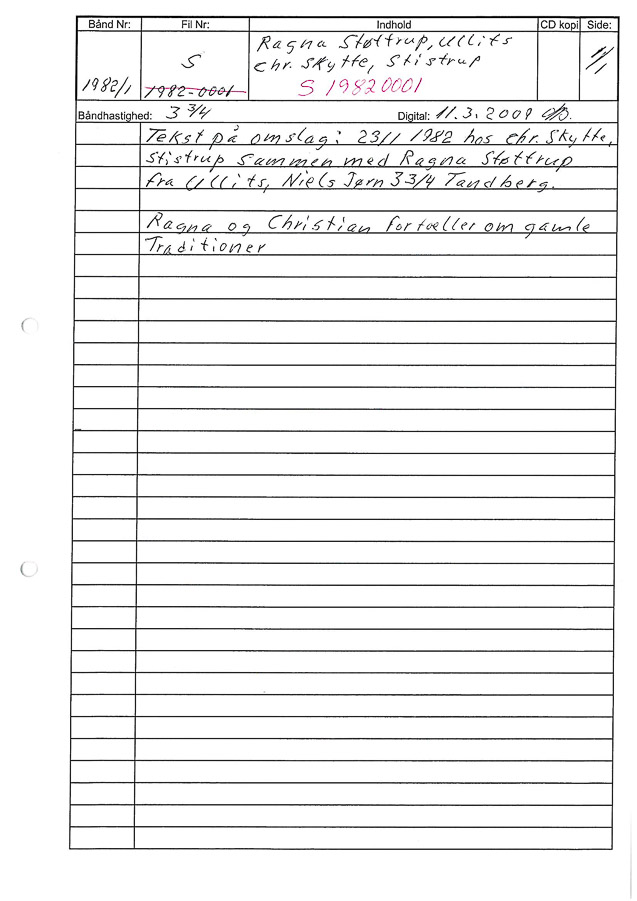 Bånd Nr: Fil Nr: Indhold CD kopi Side:
1982/1 S Ragna Støttrup, Ullits 1/1
1982-0001 Chr. Skytte, Stistrup
S 19820001
Båndhastighed: 3 3/4 Digital: 11.3.2009
Tekst på omslag: 23/1 1982 hos Chr. Skytte,
Stistrup sammen med Ragna Støttrup
fra Ullits, Niels Jørn 3 3/4 Tandberg.
Ragna og Christian fortæller om gamle
Traditioner